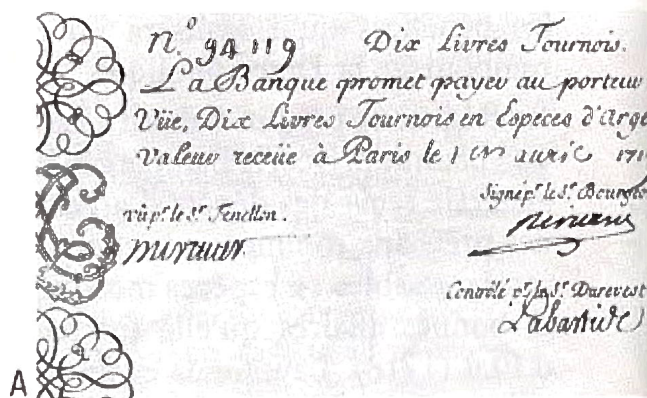 N.º 94119 Dix Livres Tournois.
La Banque promet payer au porteur
Vüe, Dix Livres Tournois en Especes d'Arge
Valeur receüe à Paris le 1
Signé p.r le S.r Bourgeo
vû p.r le S.r Fenellon.
Contrôlé p.r le S.r Durevest
Labastide
A